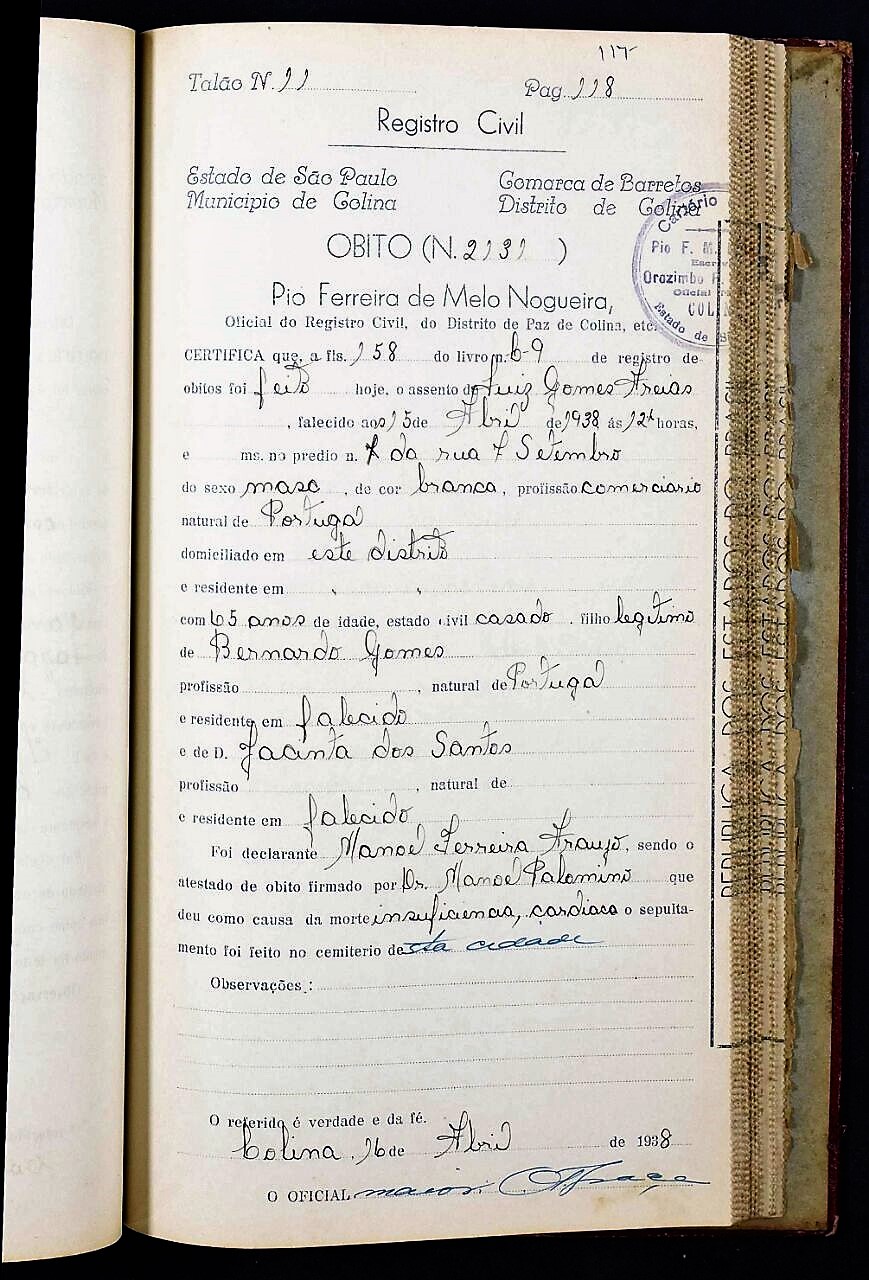 117
Talão N. 11 Pag. 118
Registro Civil
Estado de São Paulo Comarca de Barretos
Municipio de Colina Distrito de Colina
OBITO (N. 2131 )
Cartório
Pio F. M.
Orozimbo
Oficial
COLIN
Estado de S
Pio Ferreira de Melo Nogueira,
Oficial do Registro Civil, do Distrito de Paz de Colina, etc.
CERTIFICA que, a fls. 158 do livro n. C-9 de registro de
obitos foi feito hoje, o assento de Luiz Gomes Areias
, falecido aos 15 de Abril de 1938 ás 12 horas,
e ms. no predio n. da rua 7 Setembro
do sexo masc , de cor branca , profissão comerciario
natural de Portugal
domiciliado em este distrito
e residente em " "
com 65 anos de idade, estado civil casado . filho legitimo
de Bernardo Gomes
profissão , natural de Portugal
e residente em falecido
e de D. Jacinta dos Santos
profissão , natural de
e residente em falecido
Foi declarante Manoel Ferreira Araujo, sendo o
atestado de obito firmado por Dr. Manoel Palomino que
deu como causa da morte insuficiencia, cardiaca o sepulta-
mento foi feito no cemiterio desta cidade
Observações :
O referido é verdade e da fé.
Colina, 16 de Abril de 1938
O OFICIAL maior.
REPUBLICA DOS ESTADOS DO BRASIL